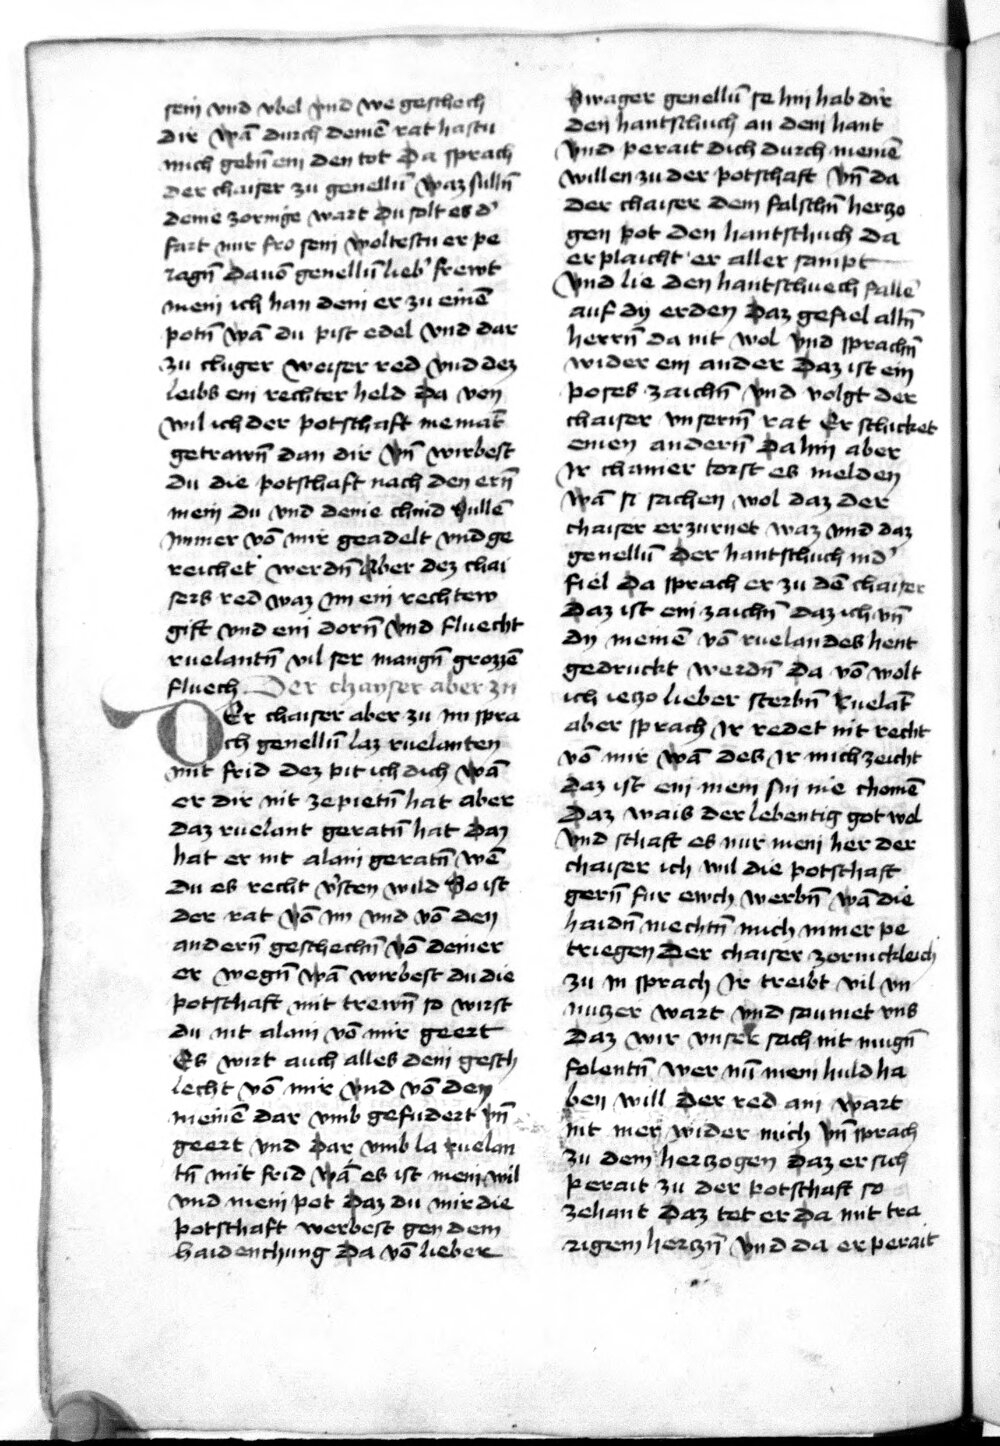 sein vnd vbel vnd we geschech
dir Wā durch deinē rat hastu
mich gebn̄ ein den tot Da sprach
der chaiser zu genellū Waz sulln̄
deine zornige wart Du solt es d'
fart nur fro sein Woltestu er pe
ragn̄ Dauō genellū lieb' frewt
mein ich han dein er zu einē
potn̄ Wā du pist edel Vnd dar
zu chluger weiser red vnd dez
leibs ein rechter held Da von
wil ich der potschaft niemāt
getrawn̄ dan dir Vn̄ wirbest
du die potschaft nach den ern̄
mein Du vnd deine chind Sullē
Immer vō mir geadelt vnd ge
reichet werdn̄ Aber dez chai
sers red waz Im ein rechtew
gift vnd ein dorn̄ Vnd fluecht
ruelantn̄ vil ser mangn̄ grozzē
fluech Der chayser aber zu
DEr chaiser aber zu im spra
ch genellū laz ruelanten
mit frid dez pit ich dich Wā
er dir nit ze pietn̄ hat aber
daz ruelant geratn̄ hat Daz
hat er nit alain geratn̄ Wē
du es recht v'sten wild So ist
der rat Vō im vnd vō den
andern̄ geschechn̄ Vō deiner
er wegn̄ Wā wirbest du die
potschaft mit trewn̄ so wirst
du nit alain vō mir geert
Es wirt auch alles dein gesch
lecht vō mir Vnd vō den
meinē dar vmb gefudert Vn̄
geert vnd Dar vmb la ruelan
tn̄ mit frid Wā es ist mein wil
vnd mein pot Daz du mir die
potschaft werbest gen dem
haidenthung Da vō lieber
Swager genellū se hin hab dir
den hantschuch an dein hant
Vnd perait dich durch meinē
willen zu der potschaft Vn̄ da
der chaiser dem falschn̄ herzo
gen pot den hantschuch da
erplaicht er aller sampt
Vnd lie den hantschuech fallē
auf dy erden Daz gefiel alln̄
herrn̄ da nit wol Vnd sprachn̄
wider ein ander Daz ist ein
poses zaichn̄ Vnd volgt der
chaiser vnserm̄ rat Er schicket
einen andern̄ Da hin aber
Ir chainer torst es melden
Wā si sachen wol daz der
chaiser erzurnet waz vnd daz
genellū Der hantschuch nid'
fiel Da sprach er zu dē chaiser
Daz ist ein zaichn̄ Daz ich vn̄
dy meinē vō ruelandes hent
gedruckt werdn̄ Da vō wolt
ich ietzo lieber sterbn̄ Ruelāt
aber sprach Ir redet nit recht
vō mir Wā des Ir mich zeicht
daz ist ein mein sin nie chomē
Daz wais der lebentig got wol
Vnd schaft es nur mein her der
chaiser ich wil die potschaft
gern̄ fur ewch werbn̄ Wā die
haidn̄ mechtn̄ mich immer pe
triegen Der chaiser zornickleich
zu im sprach Ir treibt vil vn
nutzer wart Vnd saumet vns
Daz wir vnser sach nit mugn̄
folentn̄ Wer nū mein huld ha
ben will Der red ain wart
nit mer wider mich Vn̄ sprach
zu dem hertzogen Daz er sich
perait zu der potschaft so
zehant Daz tot er Da mit tra
rigem hertzn̄ Vnd da er perait